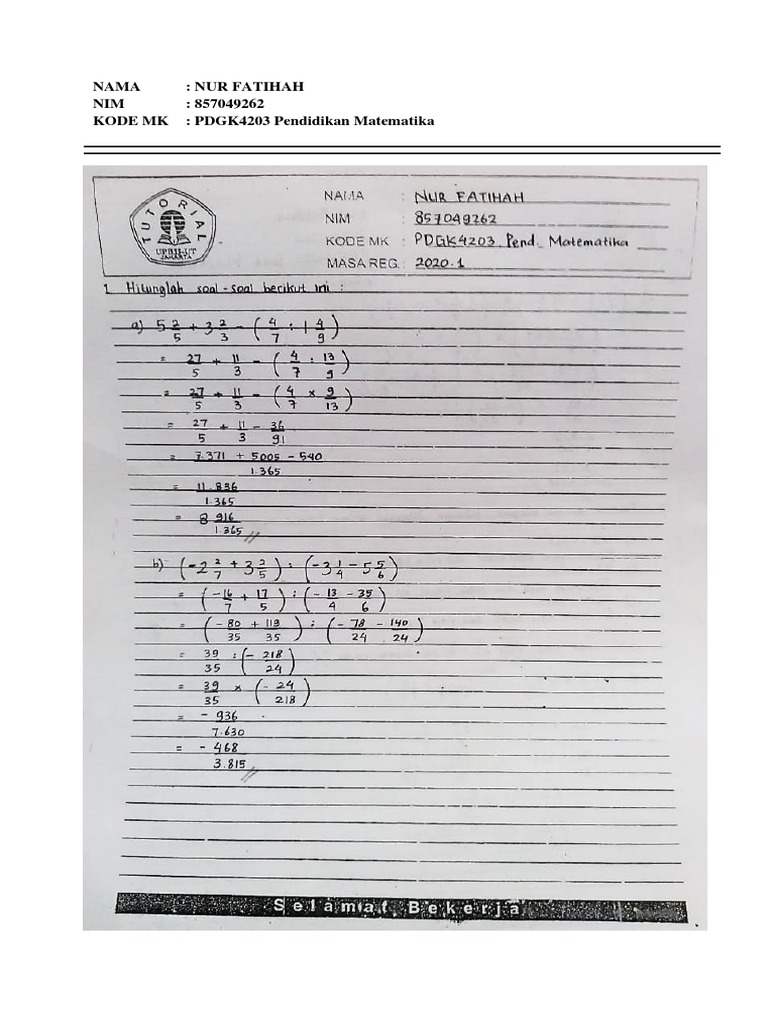 NAMA : NUR FATIHAH
NIM : 857049262
KODE MK : PDGK4203 Pendidikan Matematika
TUTORIAL
UPBJJ-UT
JAKARTA
NAMA : NUR FATIHAH
NIM : 857049262
KODE MK : PDGK4203 Pend. Matematika
MASA REG. : 2020.1
1. Hitunglah soal-soal berikut ini :
a) 5 2/5 + 3 2/3 - (4/7 : 1 4/9)
= 27/5 + 11/3 - (4/7 : 13/9)
= 27/5 + 11/3 - (4/7 × 9/13)
= 27/5 + 11/3 - 36/91
= 7.371 + 5005 - 540 / 1.365
= 11.836 / 1.365
= 8 916/1.365 //
b) (-2 2/7 + 3 2/5) : (-3 1/4 - 5 5/6)
= (-16/7 + 17/5) : (-13/4 - 35/6)
= (-80/35 + 119/35) : (-78/24 - 140/24)
= 39/35 : (-218/24)
= 39/35 × (-24/218)
= - 936/7.630
= - 468/3.815 //
Selamat Bekerja